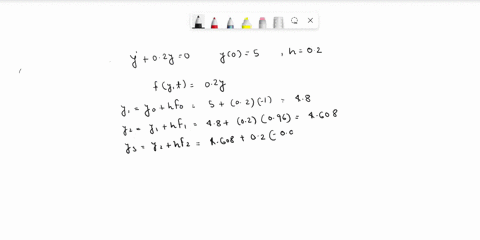 y' + 0.2y = 0 y(0) = 5 , h = 0.2
f(y,t) = 0.2y
y₁ = y₀ + hf₀ = 5 + (0.2)(-1) = 4.8
y₂ = y₁ + hf₁ = 4.8 + (0.2)(0.96) = 4.608
y₃ = y₂ + hf₂ = 4.608 + 0.2(-0.0